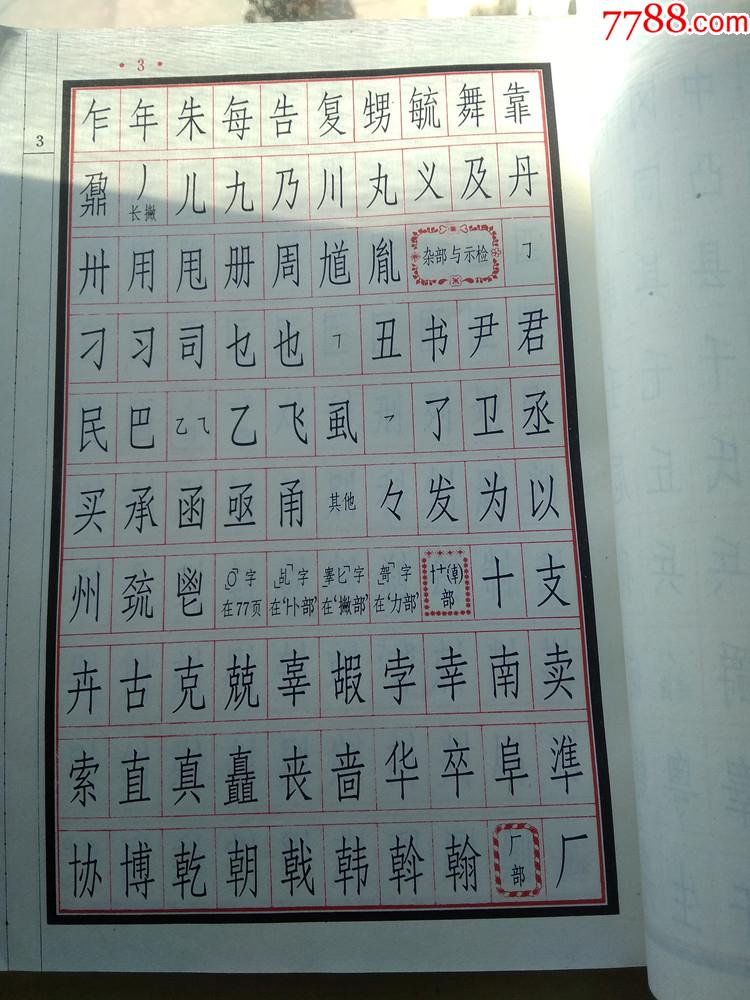 7788.com
·3·
3
乍 年 朱 每 告 复 甥 毓 舞 靠
鼐 丿 长撇 儿 九 乃 川 丸 义 及 丹
卅 用 甩 册 周 馗 胤 杂部与示检 ㇆
刁 习 司 乜 也 ㇕ 丑 书 尹 君
民 巴 乙⺄ 乙 飞 虱 了 卫 丞
买 承 函 亟 甬 其他 々 发 为 以
州 巯 鬯 字 在77页 字 在'卜部' 字 在'撇部' 字 在'力部' 部 十 支
卉 古 克 兢 辜 嘏 孛 幸 南 卖
索 直 真 矗 丧 啬 华 卒 阜 準
协 博 乾 朝 戟 韩 斡 翰 厂部 厂